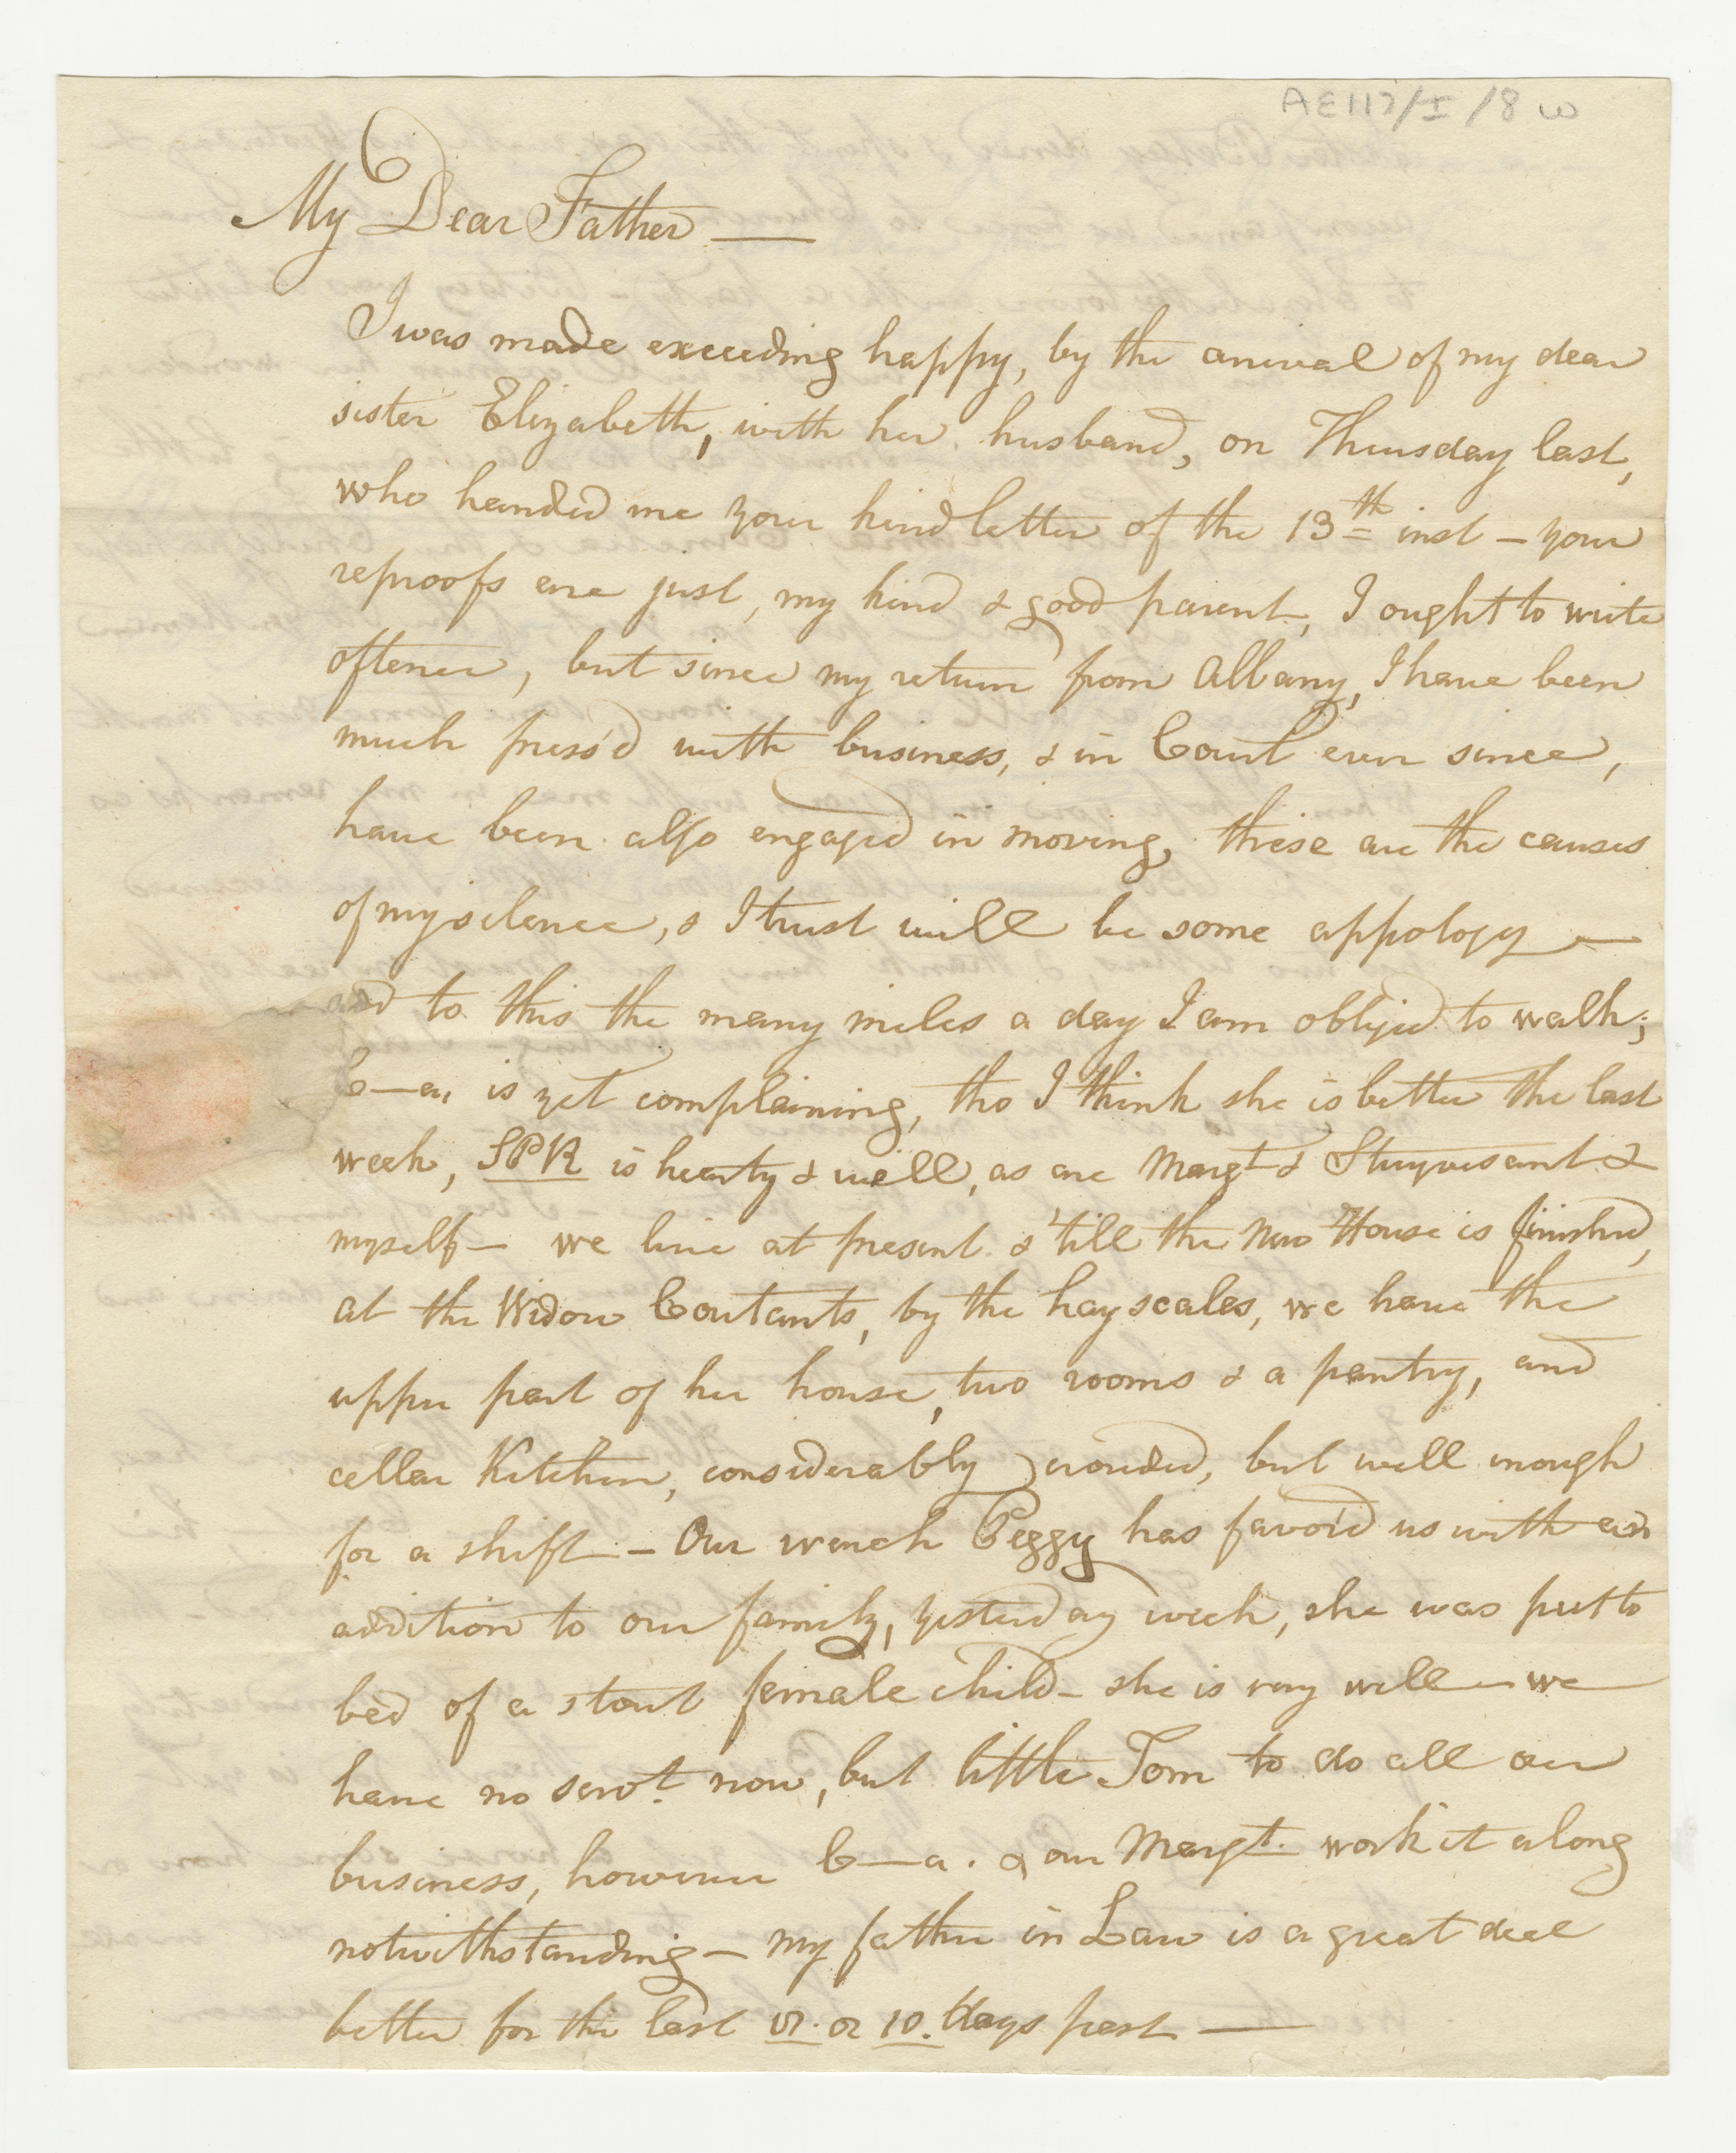 AE117/I/8 w
My Dear Father —
I was made exceeding happy, by the arrival of my dear
sister Elizabeth, with her husband, on Thursday last,
who handed me your kind letter of the 13th inst — your
reproofs are just, my kind & good parent, I ought to write
oftener, but since my return from Albany, I have been
much press'd with business, & in Court ever since,
have been also engaged in moving, these are the causes
of my silence, & I trust will be some appology —
add to this the many miles a day I am obliged to walk;
C—a, is yet complaining, tho I think she is better the last
week, SPR is hearty & well, as are Margt & Stuyvesant &
myself — we live at present & 'till the New House is finished,
at the Widow Coutants, by the hay scales, we have the
upper part of her house, two rooms & a pantry, and
cellar Kitchen, considerably crouded, but well enough
for a shift — Our wench Peggy has favor'd us with an
addition to our family, yesterday week, she was put to
bed of a stout female child — she is very well — we
have no servt. now, but little Tom to do all our
business, however C—a. & our Margt. work it along
notwithstanding — my father in Law is a great deal
better for the last or 10. days past —